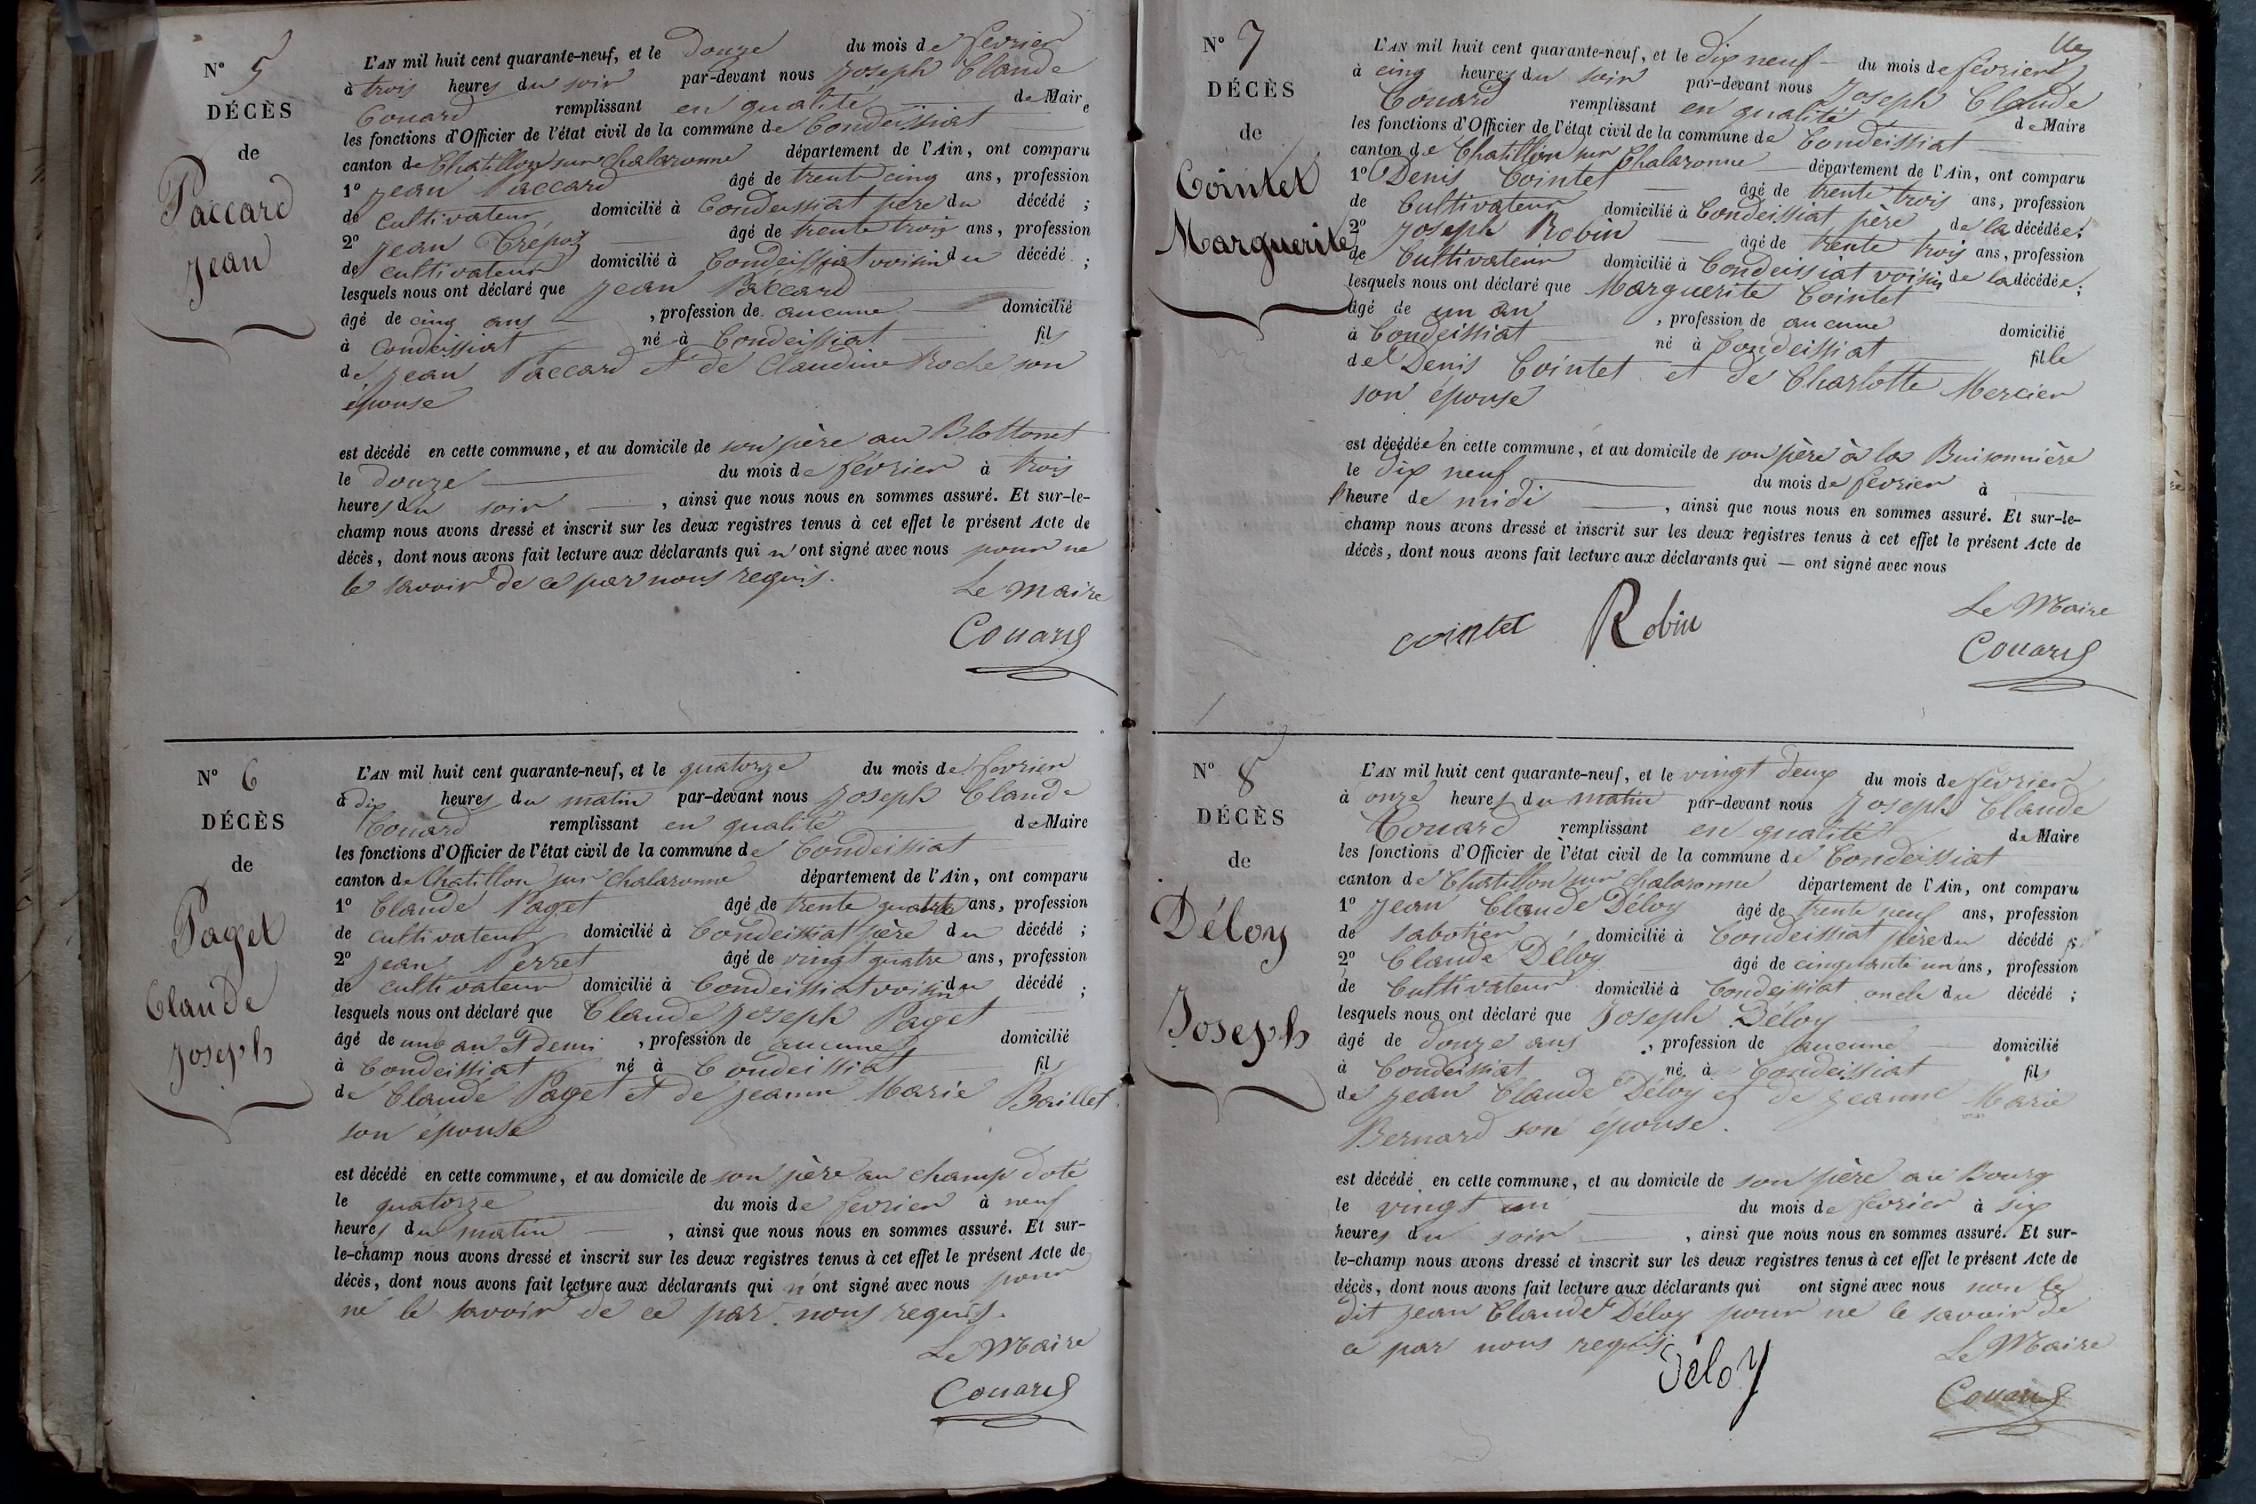 N° 5
DÉCÈS
de
Paccard
Jean
L'AN mil huit cent quarante-neuf, et le douze du mois de fevrier
à trois heures du soir par-devant nous Joseph Claude
Couard remplissant en qualité de Maire
les fonctions d'Officier de l'état civil de la commune de Condeissiat
canton de Chatillon sur Chalaronne département de l'Ain, ont comparu
1° Jean Paccard âgé de trente cinq ans, profession
de cultivateur, domicilié à Condeissiat père du décédé ;
2° Jean Trépoz âgé de trente trois ans, profession
de cultivateur domicilié à Condeissiat voisin du décédé ;
lesquels nous ont déclaré que Jean Paccard
âgé de cinq ans , profession de aucune domicilié
à Condeissiat né à Condeissiat fils
de Jean Paccard et de Claudine Roche son
épouse
est décédé en cette commune, et au domicile de son père au Blottonet
le douze du mois de février à trois
heures du soir , ainsi que nous nous en sommes assuré. Et sur-le-
champ nous avons dressé et inscrit sur les deux registres tenus à cet effet le présent Acte de
décès, dont nous avons fait lecture aux déclarants qui n'ont signé avec nous pour ne
le savoir de ce par nous requis.
Le Maire
Couard
N° 6
DÉCÈS
de
Paget
Claude
Joseph
L'AN mil huit cent quarante-neuf, et le quatorze du mois de fevrier
à dix heures du matin par-devant nous Joseph Claude
Couard remplissant en qualité de Maire
les fonctions d'Officier de l'état civil de la commune de Condeissiat
canton de Chatillon sur Chalaronne département de l'Ain, ont comparu
1° Claude Paget âgé de trente quatre ans, profession
de cultivateur domicilié à Condeissiat père du décédé ;
2° Jean Perret âgé de vingt quatre ans, profession
de cultivateur domicilié à Condeissiat voisin du décédé ;
lesquels nous ont déclaré que Claude Joseph Paget
âgé de un an et demi , profession de aucune domicilié
à Condeissiat né à Condeissiat fils
de Claude Paget et de Jeanne Marie Baillet
son épouse
est décédé en cette commune, et au domicile de son père au champ doté
le quatorze du mois de fevrier à neuf
heures du matin , ainsi que nous nous en sommes assuré. Et sur-
le-champ nous avons dressé et inscrit sur les deux registres tenus à cet effet le présent Acte de
décès, dont nous avons fait lecture aux déclarants qui n'ont signé avec nous pour
ne le savoir de ce par nous requis.
Le Maire
Couard
N° 7
DÉCÈS
de
Cointet
Marguerite
L'AN mil huit cent quarante-neuf, et le dix neuf du mois de fevrier
à cinq heures du soir par-devant nous Joseph Claude
Couard remplissant en qualité de Maire
les fonctions d'Officier de l'état civil de la commune de Condeissiat
canton de Chatillon sur Chalaronne département de l'Ain, ont comparu
1° Denis Cointet âgé de trente trois ans, profession
de Cultivateur domicilié à Condeissiat père de la décédée;
2° Joseph Robin âgé de trente trois ans, profession
de Cultivateur domicilié à Condeissiat voisin de la décédée;
lesquels nous ont déclaré que Marguerite Cointet
âgé de un an , profession de aucune domicilié
à Condeissiat né à Condeissiat fille
de Denis Cointet et de Charlotte Mercier
son épouse
est décédée en cette commune, et au domicile de son père à la Buisonnière
le dix neuf du mois de fevrier à
l'heure de midi , ainsi que nous nous en sommes assuré. Et sur-le-
champ nous avons dressé et inscrit sur les deux registres tenus à cet effet le présent Acte de
décès, dont nous avons fait lecture aux déclarants qui — ont signé avec nous
cointet Robin
Le Maire
Couard
N° 8
DÉCÈS
de
Déloy
Joseph
L'AN mil huit cent quarante-neuf, et le vingt deux du mois de fevrier
à onze heures du matin par-devant nous Joseph Claude
Couard remplissant en qualité de Maire
les fonctions d'Officier de l'état civil de la commune de Condeissiat
canton de Chatillon sur Chalaronne département de l'Ain, ont comparu
1° Jean Claude Déloy âgé de trente neuf ans, profession
de sabotier domicilié à Condeissiat père du décédé ;
2° Claude Déloy âgé de cinquante un ans, profession
de Cultivateur domicilié à Condeissiat oncle du décédé ;
lesquels nous ont déclaré que Joseph Déloy
âgé de douze ans , profession de aucune domicilié
à Condeissiat né à Condeissiat fils
de Jean Claude Déloy et de Jeanne Marie
Bernard son épouse.
est décédé en cette commune, et au domicile de son père au Bourg
le vingt un du mois de fevrier à six
heures du soir , ainsi que nous nous en sommes assuré. Et sur-
le-champ nous avons dressé et inscrit sur les deux registres tenus à cet effet le présent Acte de
décès, dont nous avons fait lecture aux déclarants qui ont signé avec nous non le
dit Jean Claude Déloy pour ne le savoir de
ce par nous requis
Déloy
Le Maire
Couard